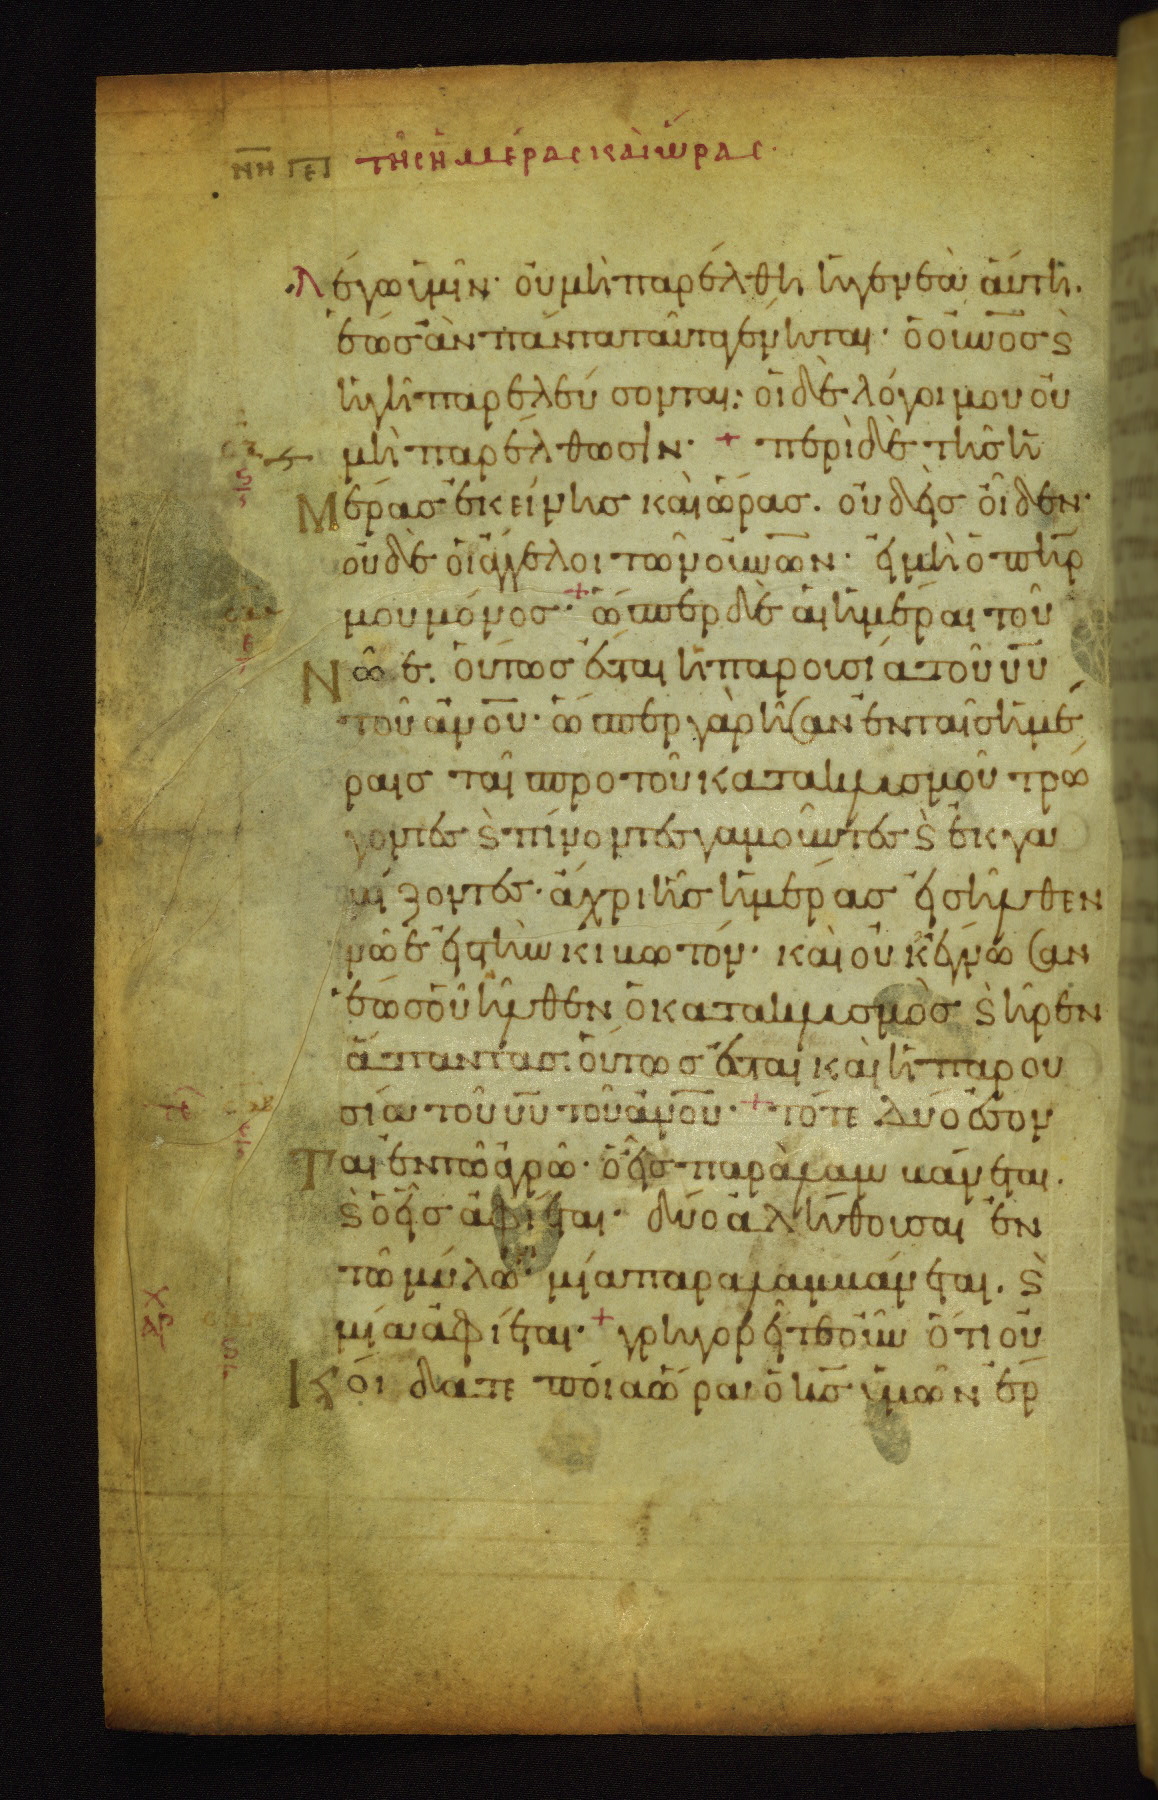 νη τῆς ἡμέρας καὶ ὥρας.
Λέγω ὑμῖν· οὐ μὴ παρέλθη ἡ γενεὰ αὕτη.
ἕως ἂν πάντα ταῦτα γένηται· ὁ οὐνος ϗ
ἡ γῆ παρελεύσονται· οἱ δὲ λόγοι μου οὐ
μὴ παρέλθωσιν· + περὶ δὲ τῆς ἡ
Μέρας ἐκείνης καὶ ὥρας. οὐδεὶς οἶδεν·
οὐδὲ οἱ ἄγγελοι τῶν οὐνων· εἰ μὴ ὁ πηρ
μου μόνος· + ὥσπερ δὲ αἱ ἡμέραι τοῦ
Νῶε. οὕτως ἔσται ἡ παρουσία τοῦ υυ
τοῦ ανου· ὥσπερ γὰρ ἦσαν ἐν ταῖς ἡμέ
ραις ταῖ προ τοῦ κατακλυσμοῦ τρώ
γοντες ϗ πίνοντες γαμοῦντες ϗ ἐκγα
μίζοντες· ἄχρι ἧς ἡμέρας εἰσῆλθεν
νῶε εἰς τὴν κιβωτόν· καὶ οὐκ ἔγνωσαν
ἕως οὗ ἦλθεν ὁ κατακλυσμὸς ϗ ἦρεν
ἅπαντας· οὕτως ἔσται καὶ ἡ παρου
σία τοῦ υυ τοῦ ανου· + τότε δύο ἔσον
Ται ἐν τῶ ἀγρῶ· ὁ εἷς παραλαμβάνεται.
ϗ ὁ εἷς ἀφίεται· δύο ἀλήθουσαι ἐν
τῶ μύλω· μία παραλαμβάνεται. ϗ
μία ἀφίεται· + γρηγορεῖτε οὖν ὅτι οὐ
Κ οἴδατε ποία ὥρα ὁ κς ὑμῶν ἔρ